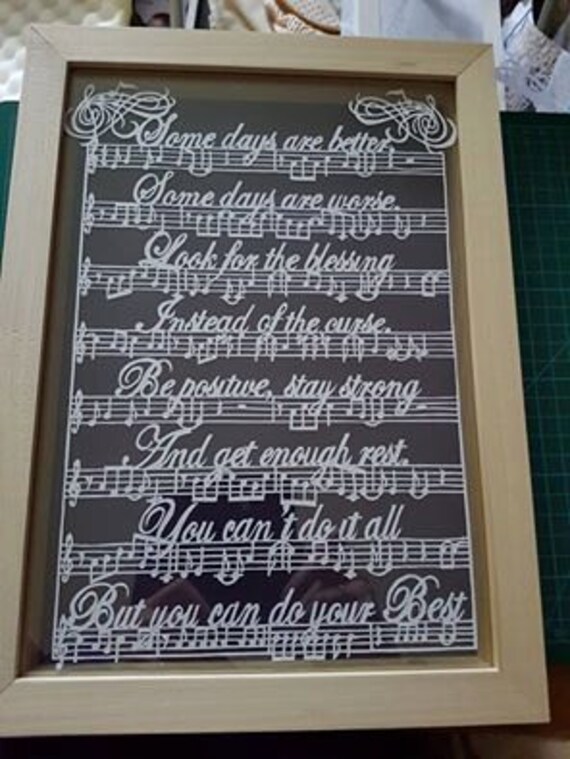 Some days are better
Some days are worse.
Look for the blessing
Instead of the curse.
Be positive, stay strong
And get enough rest.
You can't do it all
But you can do your Best